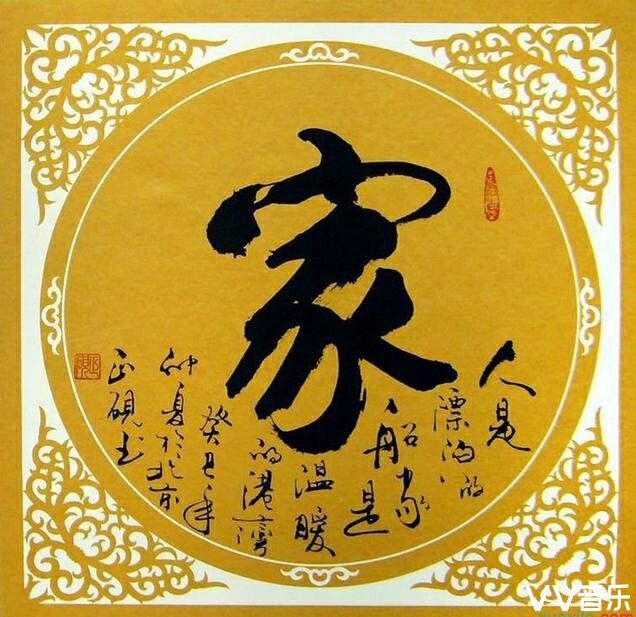 家
人是
漂泊的
船家
是
温暖
的港灣
癸丑年
仲夏於北京
正硯书
VV音乐